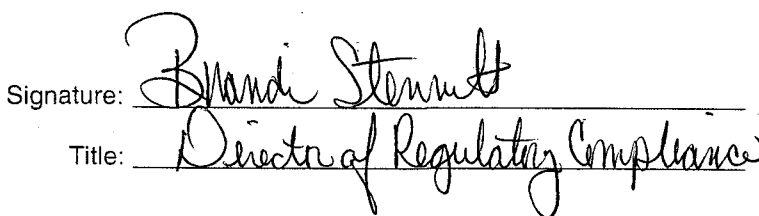 Signature: Brandi Stennett
Title: Director of Regulatory Compliance